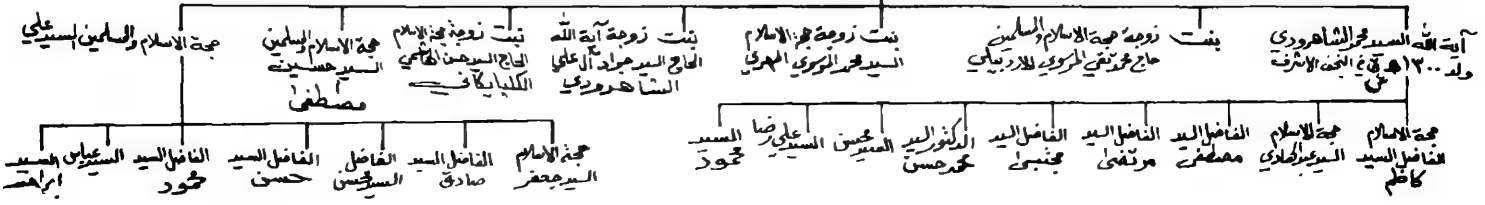 آية الله السيد محمد الشاهرودي
ولد ١٣٠٠ هـ ش في النجف الاشرف
بنت زوجة حجة الاسلام والمسلمين
حاج محمد تقي الموسوي الاردبيلي
بنت زوجة حجة الاسلام
السيد محمد الموسوي المهري
بنت زوجة آية الله
الحاج السيد جواد آل علي
الشاهرودي
بنت زوجة حجة الاسلام
الحاج السيد حسن الهاشمي
الكلبايكاني
حجة الاسلام والمسلمين
السيد حسين
مصطفى
حجة الاسلام والمسلمين السيد علي
حجة الاسلام
الفاضل السيد
كاظم
حجة الاسلام
السيد عبد الهادي
الفاضل السيد
مصطفى
الفاضل السيد
مرتضى
الفاضل السيد
مجتبى
الدكتور السيد
محمد حسن
السيد محسن
السيد علي رضا
السيد
محمود
حجة الاسلام
السيد جعفر
الفاضل السيد
صادق
الفاضل
السيد محسن
الفاضل السيد
حسن
الفاضل السيد
محمود
السيد عباس
السيد
ابراهيم